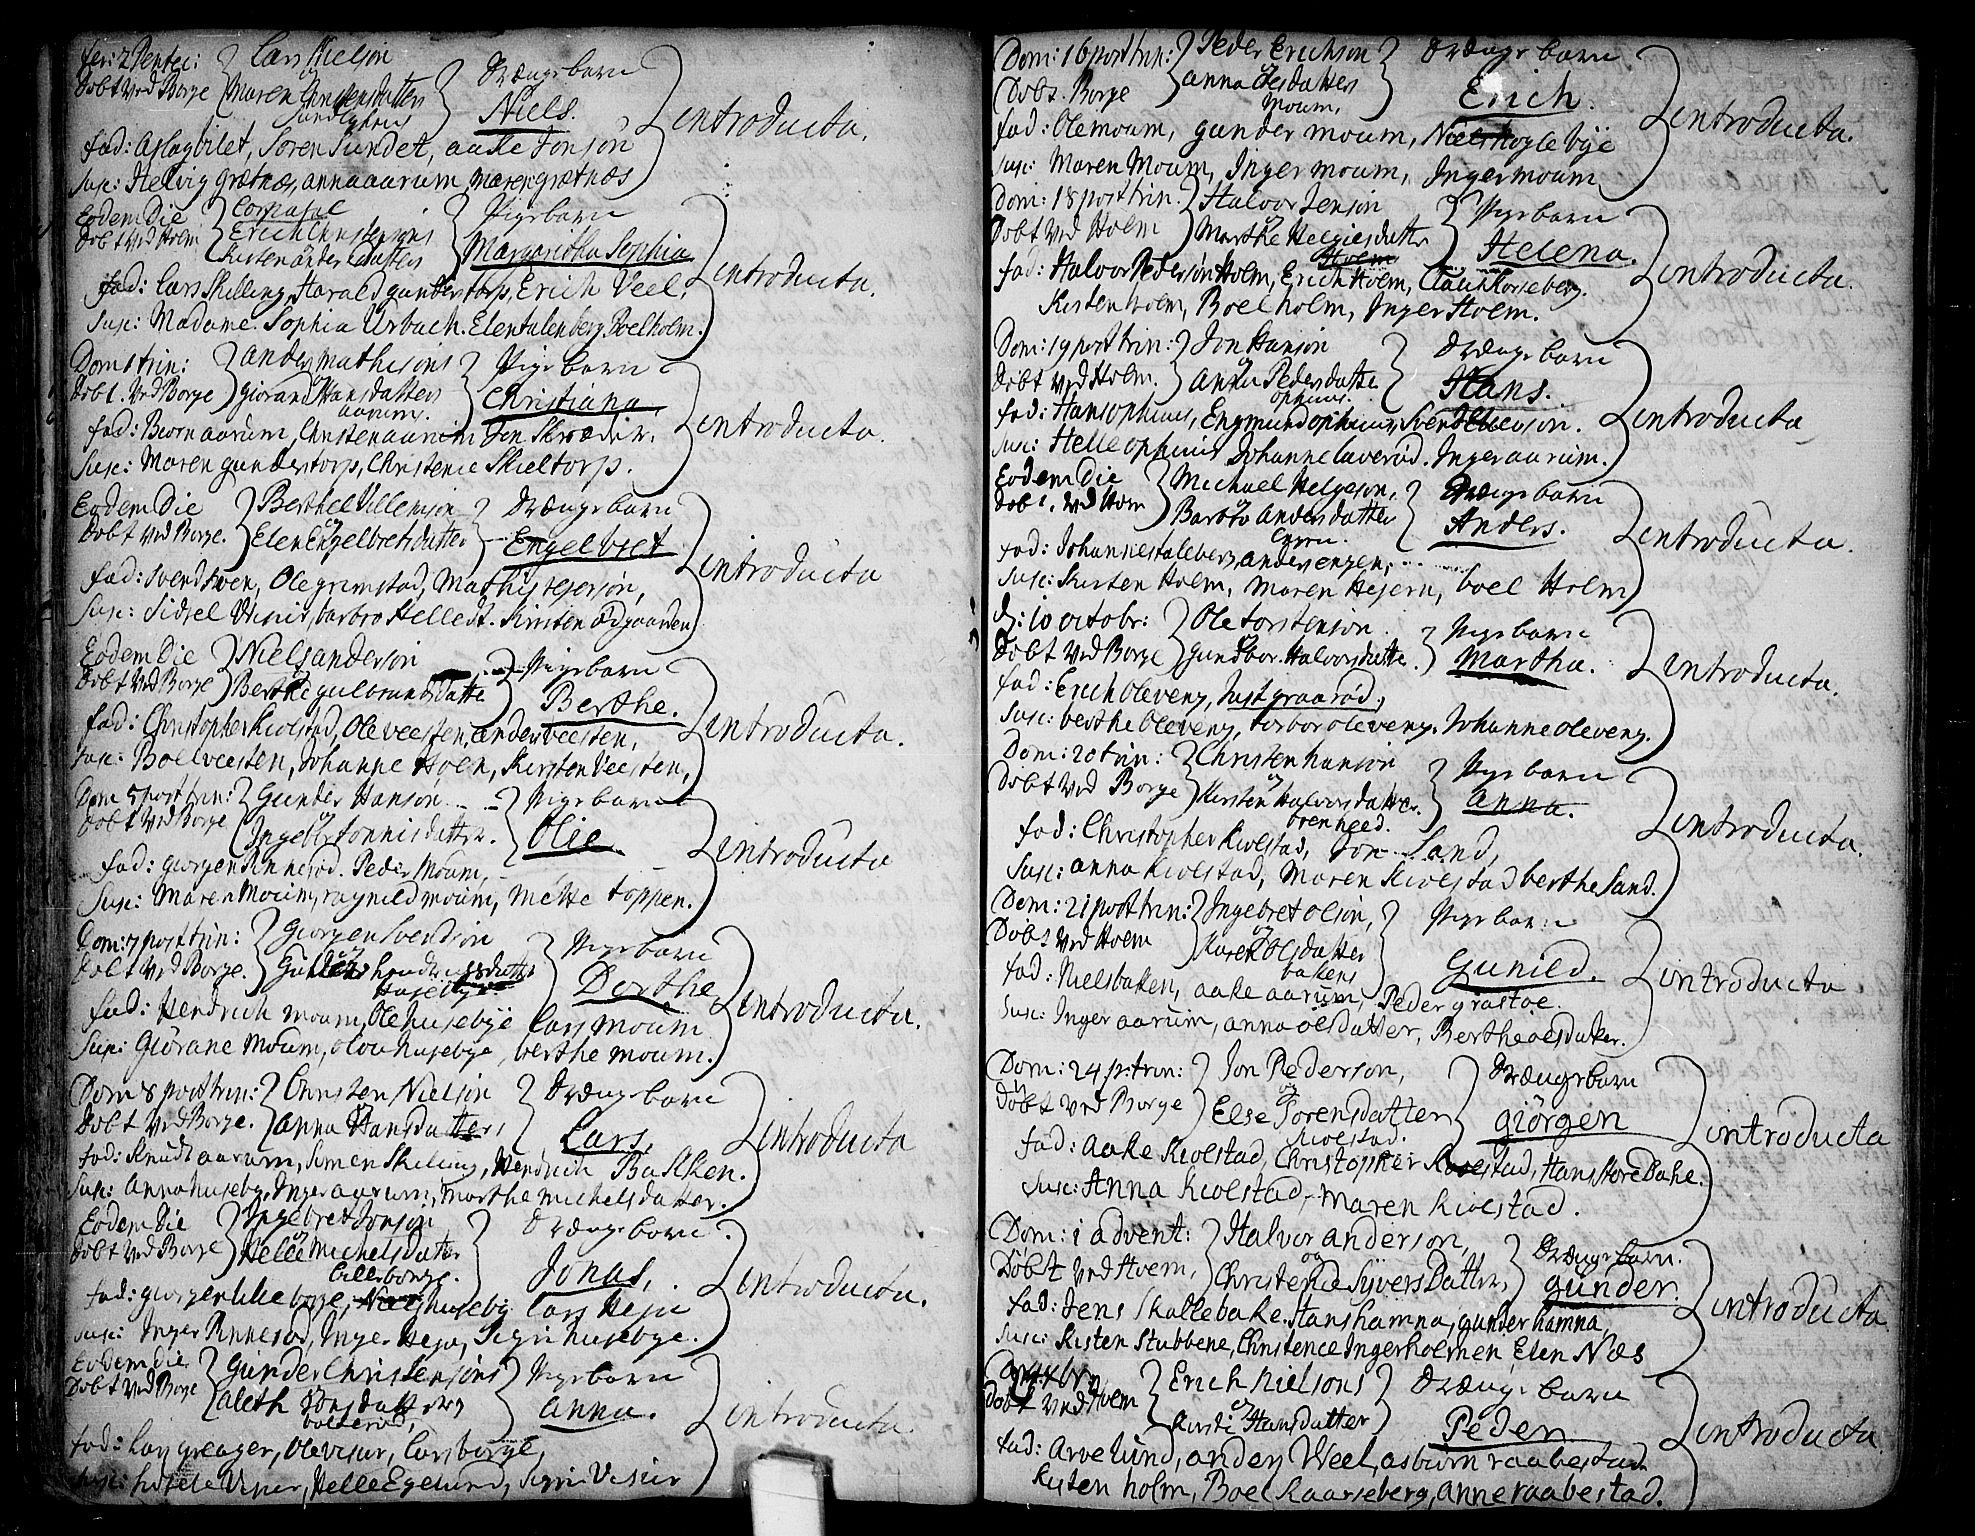 Fer: 2 Pentec: Lars Nielsøn Drængebarn
Døbt ved Borge Maren Christensdatters Niels. introducta.
fad: Aslag bilet, Soren Sundet, aake Jonsøn
Susc: Helvig grætnæs, anna aarum, maren grætnæs
Eodem Die Corporal Pigebarn
Døbt ved Holm Erich Christensøns Margaretha Sophia introducta.
Kirsten andersdatters
fad: Lars Skilling, Harald gunderstorp, Erich Veel,
Susc: Madame Sophia Urbach. Elen talenberg, Boel holm.
Dom 1 trin: anders mathisøns Pigebarn
Døbt. ved Borge giøran Hansdatters Christiana introducta.
aarum.
fad: Biørn aarum, Christen aarum Jon Skræder.
Susc: Maren gunderstorp, Christence Skieltorp.
Eodem Die Berthel Villemsøn Drængebarn
Døbt ved Borge. Elen Engelbretsdatter Engelbret introducta
fad: Svend Hven, Ole grimstad, Mathis
Susc: Sidsel Visnit, barbro Helledt. Kirsten ødgaarden
Eodem Die Niels anderson Pigebarn
Døbt ved Borge Berthe gulbrandsdatter Berthe. introducta.
fad: Christopher Kiolstad, Ole veesten, anders veesten,
Susc: Boel veesten, Johanne Hoen, Kirsten Veesten,
Dom 5 post trin: Gunder Hansøn Pigebarn
Døbt ved Borge Ingebor tønnisdatter. Olie introducta
fad: giørgen Rinnesød. Peder Moum,
Susc: Maren Moum, ragnild moum, mette toppen.
Dom: 7 post trin: Giørgen Svendsøn Pigebarn
Døbt ved Borge. hendrichsdatter Dorthe introducta.
Husebye
fad: Hendrich moum, Ole husebye Lars moum
Susc: Giørane Moum, olou husebye, berthe moum.
Dom 8 post trin: Christen Nielsøn Drængebarn
Døbt ved Borge. anna Hansdatters Lars introducta
fad: Knudt aarum, Simen Skilling, Hendrich Bakken.
Susc: Anna husebye, Inger aarum, marthe michelsdatter.
Eodem Die Ingebret Jonsøn Drængebarn
Døbt ved Borge Helle Michelsdatter Jonas, introducta.
Lilleborge.
fad: giørgen lilleborge, Niels husebye Lars Heje
Susc: Inger Rinnesød, Inger Heje, Sigri husebye.
Eodem Die Gunder Christensøns Pigebarn
Døbt ved Borge aleth Jonsdatters anna. introducta.
fad: Lars greager, Ole visur, Lars borge,
Susc: Visur, Helle Egelund, Sigri Visur
Dom: 16 post trin: Peder Erichsøn Drængebarn
Døbt. Borge anna olesdatters Erich. introducta.
Moum,
fad: Ole moum, gunder moum, Niels Kogleby
Susc: Maren Moum, Inger moum, Inger moum
Dom: 18 post trin. Halvor Jensøn Pigebarn
Døbt ved Holm Marthe Helgiesdatter Helena. introducta.
Holm
fad: Halvor Pedersøn Holm, Erich Holm, Claus Korseberg.
Kirsten holm, Boel holm, Inger Holm.
Dom: 19 post trin: Jon Hansøn Drængebarn
Døbt ved Holm. anna Pedersdatter Hans. introducta
ophuus.
fad: Hans ophuus, Engmund ophuus, Svend Ellevsøn.
Susc: Helle ophuus Johanne laverød. Inger aarum.
Eodem Die Michael Helgeson, Drængebarn
Døbt. ved Hom Barbro Andersdatter Anders. introducta.
fad: Johannes taleberg, anders engen,
Susc: Kirsten Holm, maren Hejern, boel Holm
d: 10 octobr: Ole torstensøn Pigebarn
Døbt ved Borge gundbor Halvorsdatter Martha. introducta.
fad: Erich Oleveng, Just graarød,
Susc: berthe Oleveng, torbor oleveng, Johanne oleveng.
Dom: 20 trin: Christen hansøn Pigebarn
Døbt ved Borge Kirsten Halvorsdatter. anna. introducta.
brenheed.
fad: Christopher Kiolstad, Jon Sand,
Susc: anna Kiolstad, Maren Kiolstad berthe Sand.
Dom: 21 post trin: Ingebret olsøn, Pigebarn
Døbt ved Holm Karen Olsdatter Gunild. introducta
bakens
fad: Niels baken, aake aarum, Peder grastoe.
Susc: Inger aarum, anna olsdatter, Berthe olsdatter.
Dom: 24 p: trin: Jon Pederson, Drængebarn
Døbt ved Borge Else Sorensdatter giörgen introducta
Kiolstad.
fad: Aake Kiolstad, Christopher Kiolstad, Hans Storebake.
Susc: Anna Kiolstad, Maren Kiolstad.
Dom: 1 advent: Halvor anderson, Drængebarn.
Døbt ved Hoem, Christence Syvers Datter, gunder. introducta
fad: Jens Skallebake. Hans hamna, gunder hamna,
Susc: Kirsten Stubbene, Christence Ingerholmen Elen Næs
Erich Nielsøns Drængebarn
Døbt ved Hoem Kirsti Hansdatter Peder introducta
fad: Arve lund, anders Weel, asbiørn raabestad
Kirsten holm, Boel Kaarseberg, anne raabestad.